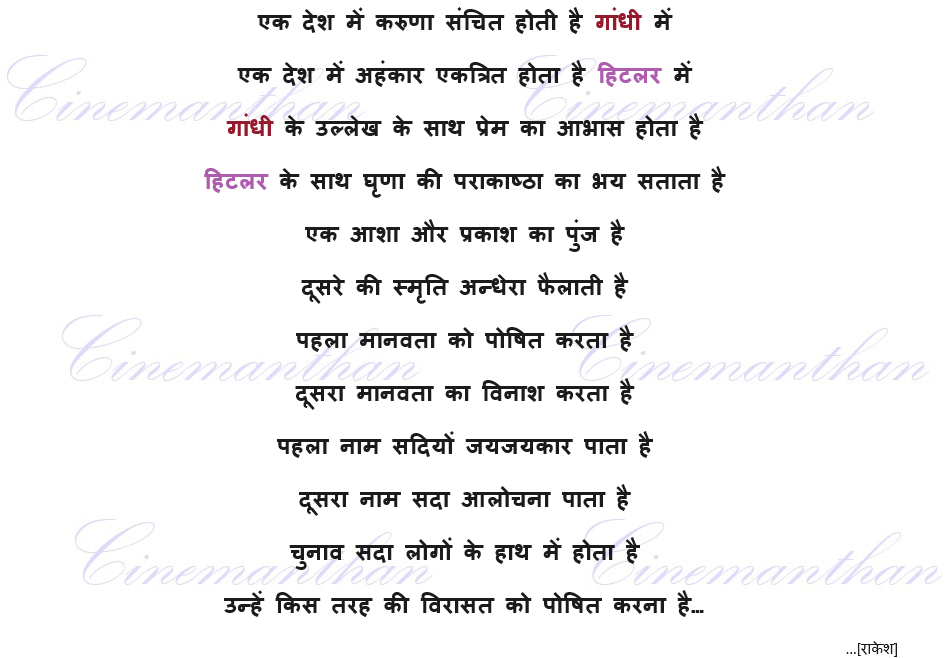 एक देश में करुणा संचित होती है गांधी में
एक देश में अहंकार एकत्रित होता है हिटलर में
गांधी के उल्लेख के साथ प्रेम का आभास होता है
हिटलर के साथ घृणा की पराकाष्ठा का भय सताता है
एक आशा और प्रकाश का पुंज है
दूसरे की स्मृति अन्धेरा फैलाती है
पहला मानवता को पोषित करता है
दूसरा मानवता का विनाश करता है
पहला नाम सदियों जयजयकार पाता है
दूसरा नाम सदा आलोचना पाता है
चुनाव सदा लोगों के हाथ में होता है
उन्हें किस तरह की विरासत को पोषित करना है...
...[राकेश]
Cinemanthan Cinemanthan
Cinemanthan Cinemanthan
Cinemanthan Cinemanthan